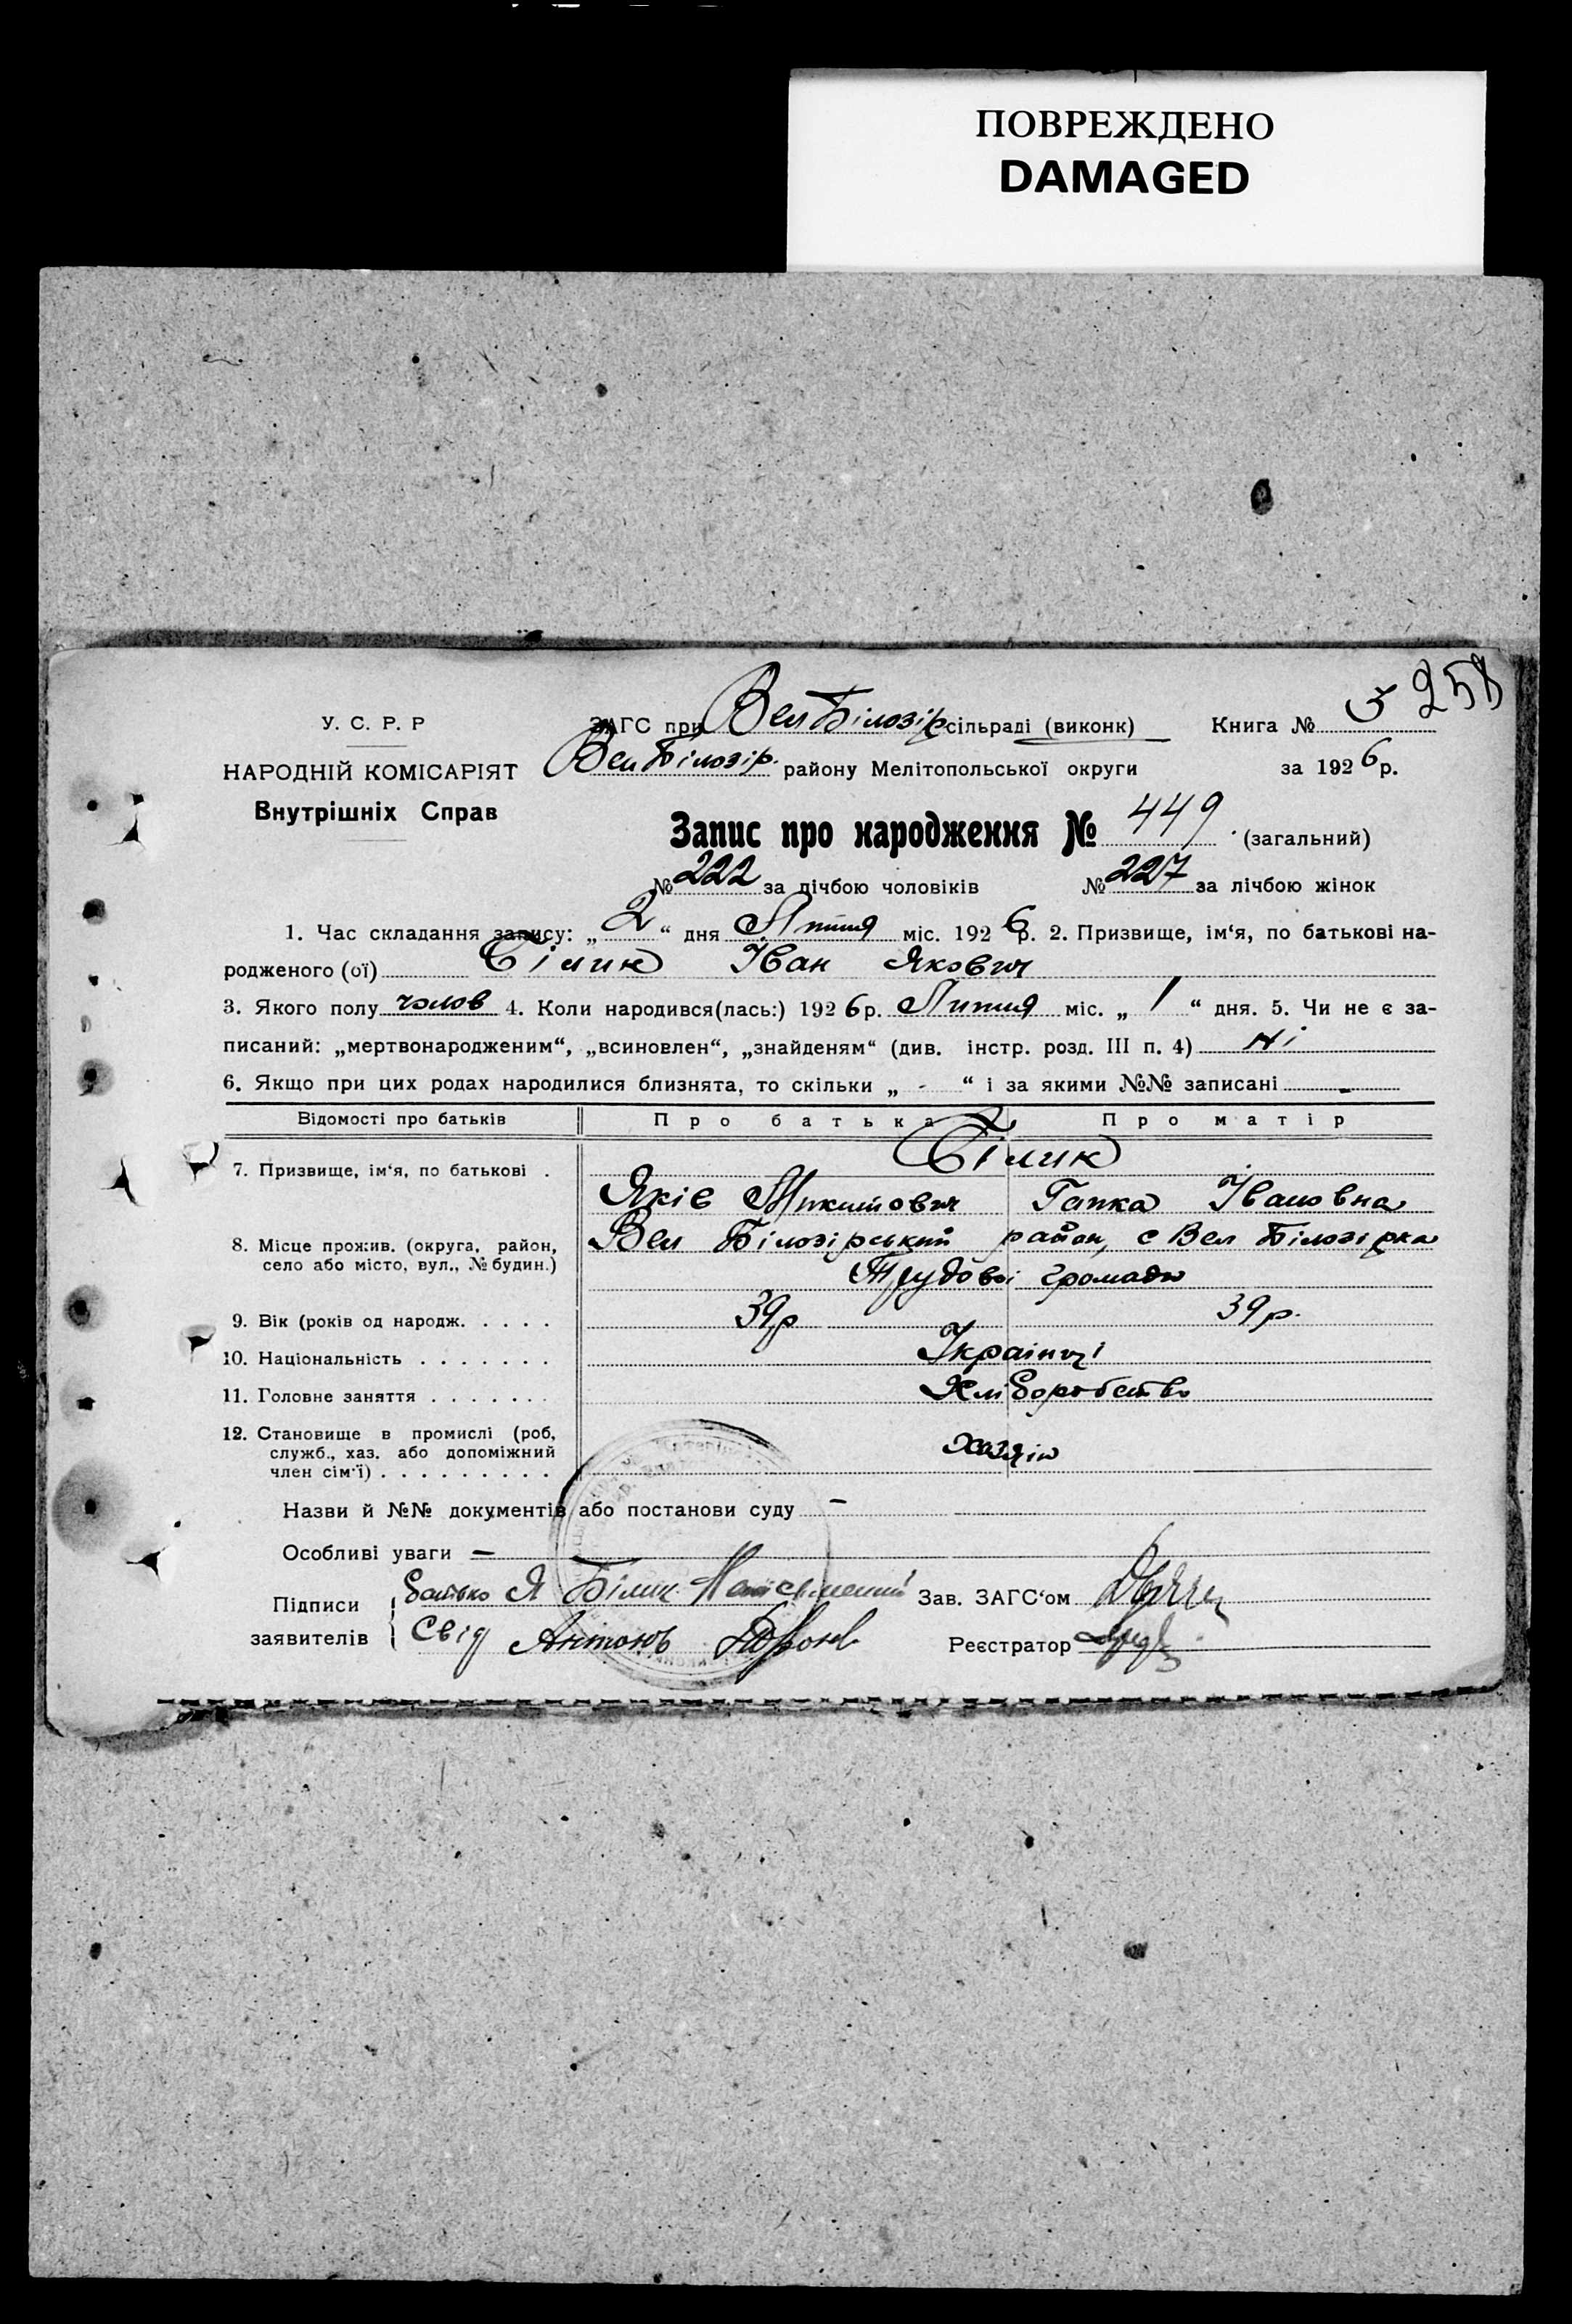 ПОВРЕЖДЕНО
DAMAGED
258
У. С. Р. Р
ЗАГС при Вел Білозір сільраді (виконк)
Книга № 5
НАРОДНІЙ КОМІСАРІЯТ
Вел Білозір. району Мелітопольської округи
за 1926 р.
Внутрішніх Справ
Запис про народження № 449 (загальний)
№ 222 за лічбою чоловіків № 227 за лічбою жінок
1. Час складання запису: „ 2 “ дня Липня міс. 1926 р. 2. Призвище, ім‘я, по батькові на-
родженого (ої) Білик Іван Якович
3. Якого полу чолов 4. Коли народився(лась:) 1926 р. Липня міс. „ 1 “ дня. 5. Чи не є за-
писаний: „мертвонародженим“, „всиновлен“, „знайденям“ (див. інстр. розд. III п. 4) Ні
6. Якщо при цих родах народилися близнята, то скільки „ - “ і за якими №№ записані -
Відомості про батьків Про батька Про матір
Білик
7. Призвище, ім‘я, по батькові .
Яків Микитович Гапка Івановна
8. Місце прожив. (округа, район, Вел Білозірський район, с Вел Білозірка
село або місто, вул., № будин.) Трудової громади
9. Вік (років од народж. . . . . 39р 39р.
10. Національність . . . . . . . Українці
11. Головне заняття . . . . . . . Хліборобство
12. Становище в промислі (роб,
служб., хаз. або допоміжний хазяїн
член сім‘ї) . . . . . . . . .
Назви й №№ документів або постанови суду -
Особливі уваги -
Підписи Батько Я Білик Зав. ЗАГС‘ом
заявителів Свід Антонь Реєстратор